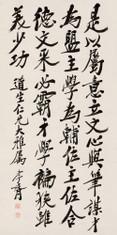 是以屬意立文心與筆謀才
為盟主學為輔佐主佐合
德文采必霸才學褊狹雖
美少功
道生仁兄大雅屬 李育